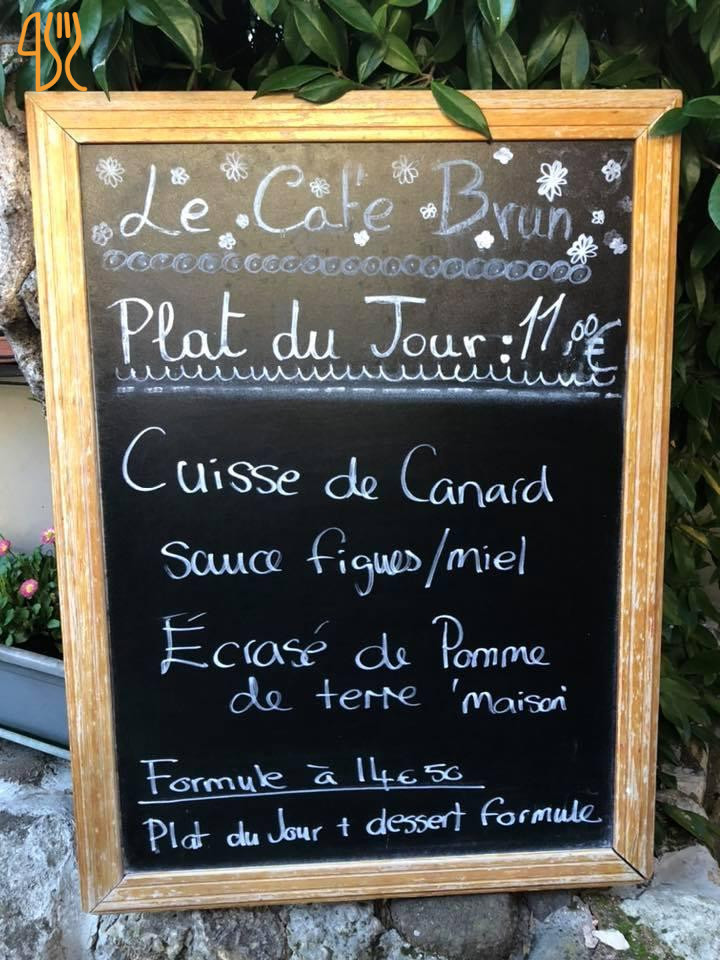 Le Café Brun
Plat du Jour : 11,00€
Cuisse de Canard
sauce figues/miel
Écrasé de Pomme
de terre 'maison
Formule à 14€50
Plat du Jour + dessert formule